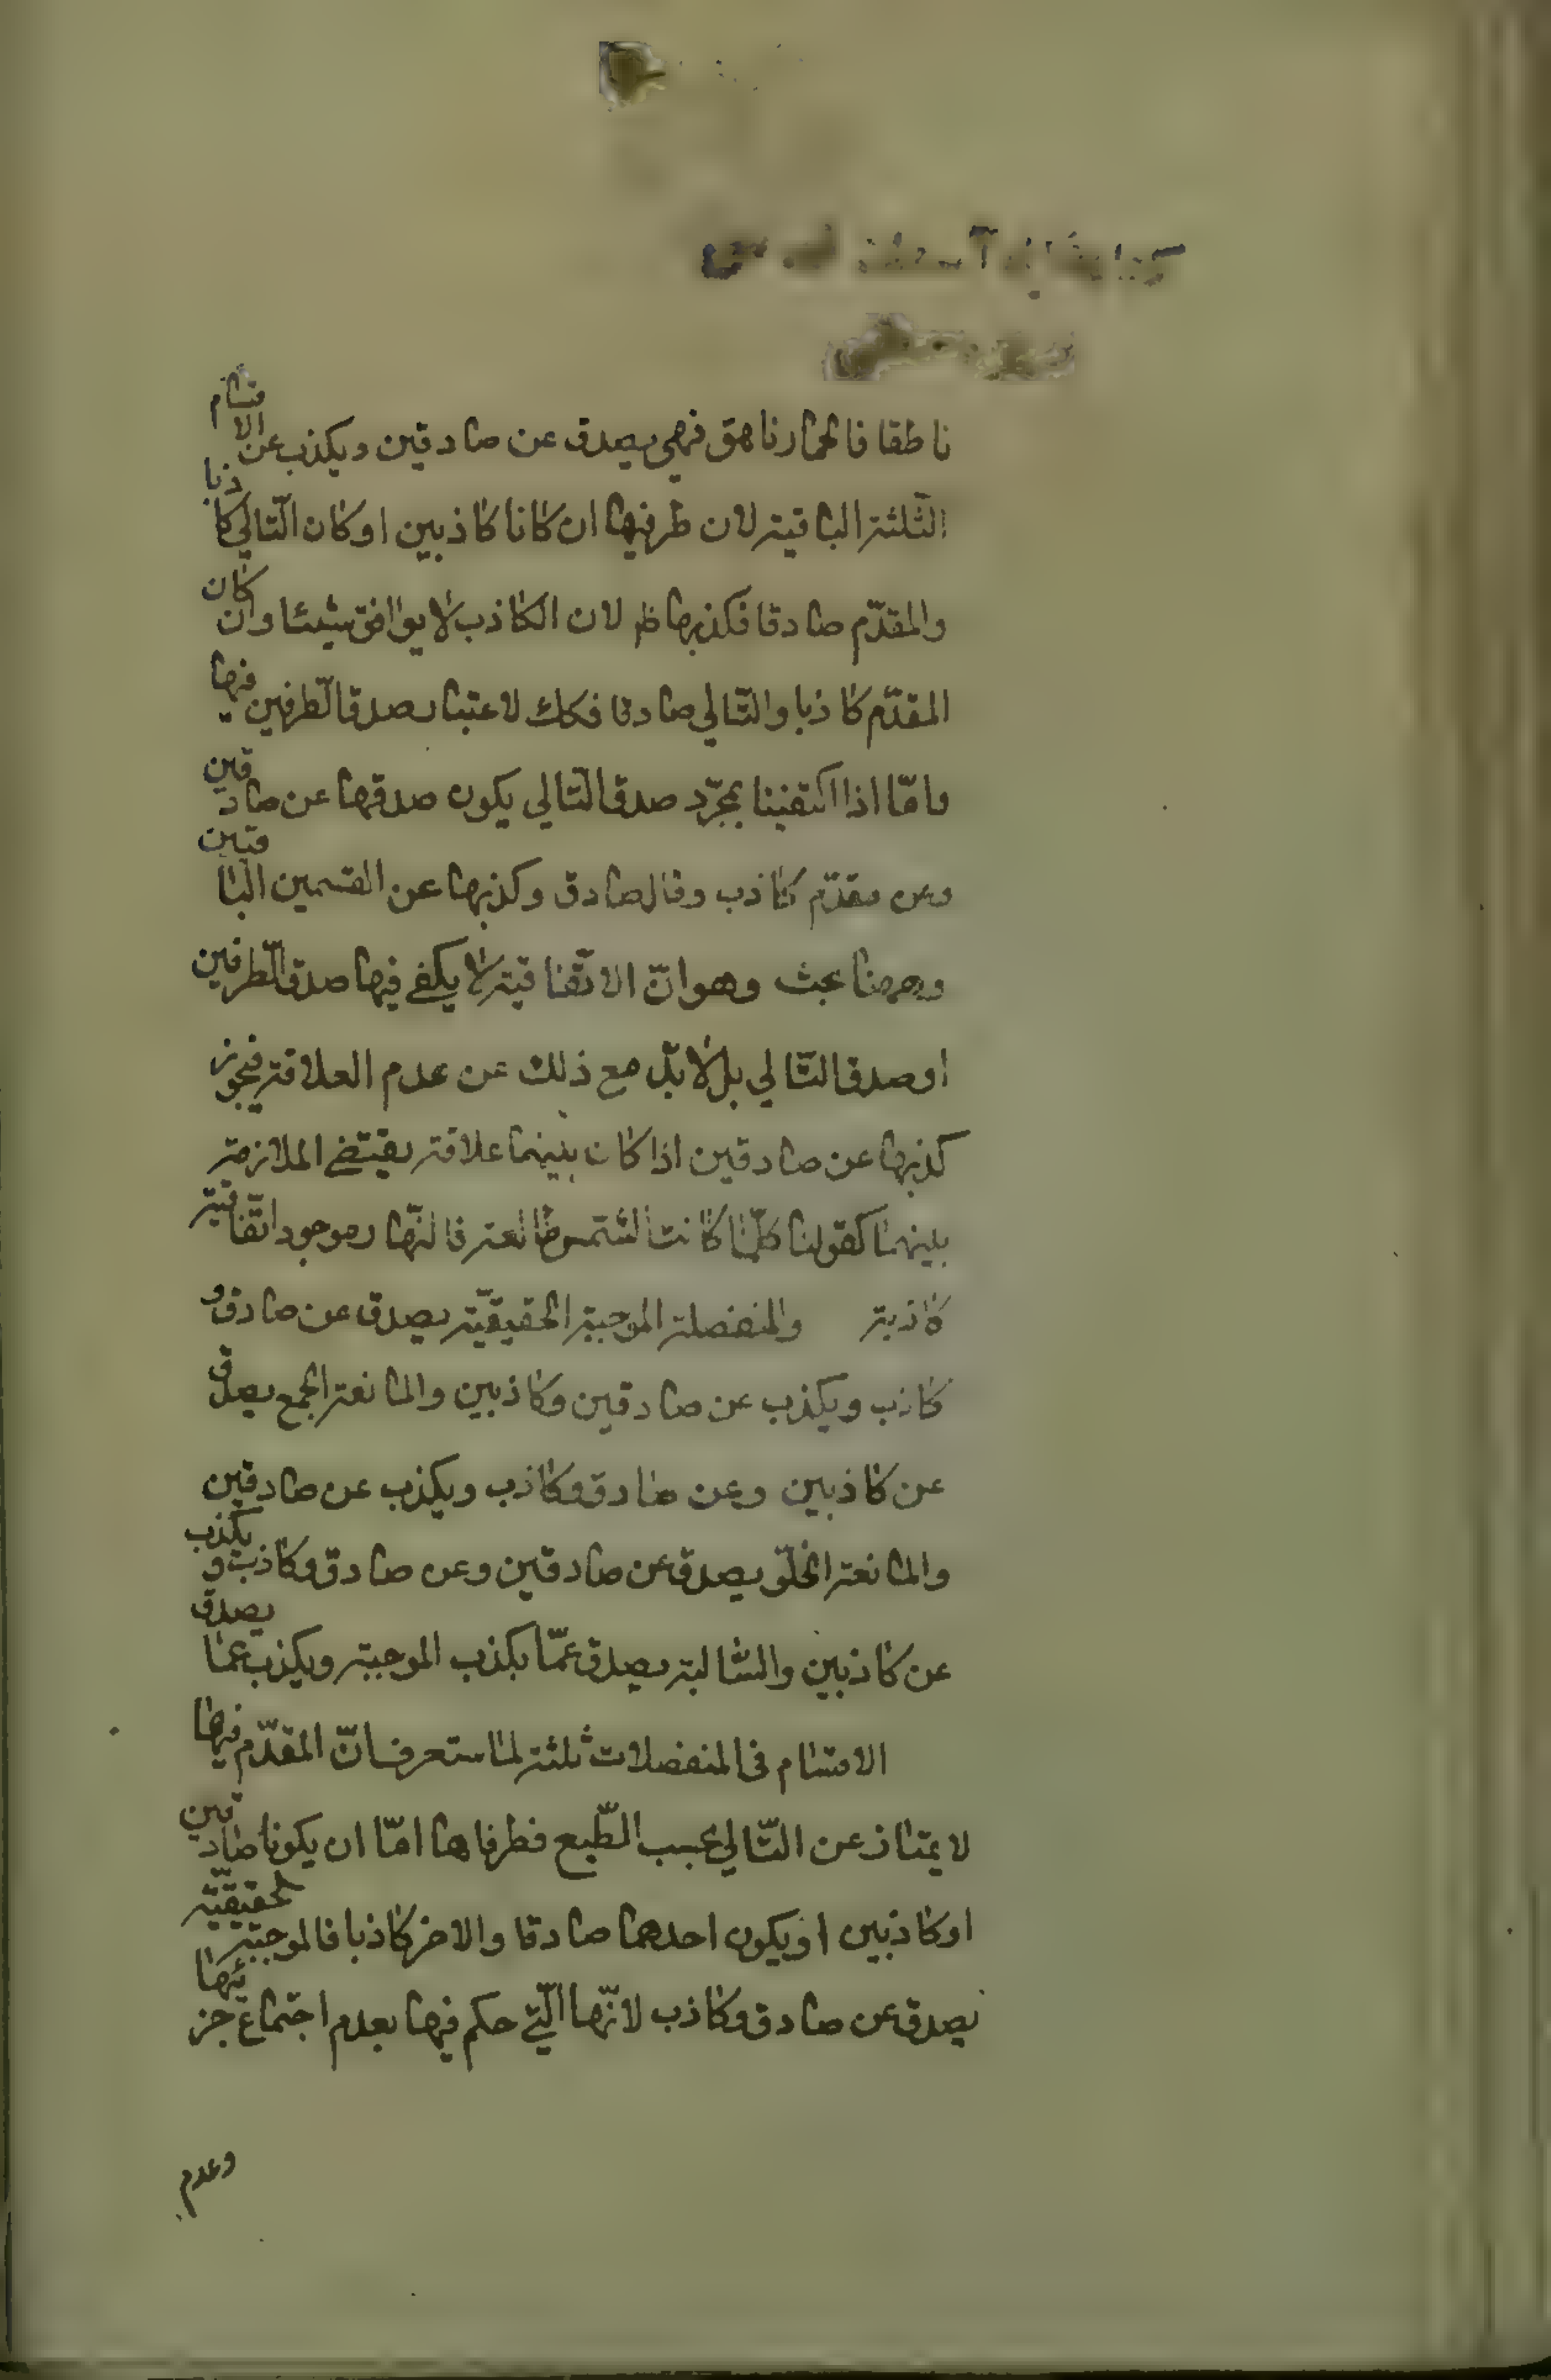 ناطقا فالحمار ناهق فهى يصدق عن صادقين ويكذب عن الاقسام
الثلثة الباقية لان طرفيها ان كانا كاذبين او كان التالي كاذبا
والمقدّم صادقا فكذبها ظ لان الكاذب لا يوافق شيئا وان كان
المقدّم كاذبا والتالي صادقا فكك لاعتبار صدق الطرفين فيها
وامّا اذا اكتفينا بمجرّد صدق التالي يكون صدقها عن صادقين
وعن مقدّم كاذب وتال صادق وكذبها عن القسمين الباقيين
وههنا بحث وهو انّ الاتّفاقية لا يكفى فيها صدق الطّرفين
او صدق التالي بل لا بدّ مع ذلك من عدم العلاقة فيجوز
كذبها عن صادقين اذا كان بينهما علاقة يقتضى الملازمة
بينهما كقولنا كلّما كانت الشمس طالعة فالنّهار موجود اتّفاقية
كاذبة والمنفصلة الموجبة الحقيقيّة يصدق عن صادق و
كاذب ويكذب عن صادقين وكاذبين والمانعة الجمع يصدق
عن كاذبين وعن صادق وكاذب ويكذب عن صادقين
والمانعة الخلوّ يصدق عن صادقين وعن صادق وكاذب ويكذب
عن كاذبين والسالبة يصدق عمّا يكذب الموجبة ويكذب عمّا يصدق
الاقسام فى المنفصلات ثلثة لما ستعرف انّ المقدّم فيها
لا يمتاز عن التّالي بحسب الطّبع فطرفاها امّا ان يكونا صادقين
او كاذبين او يكون احدهما صادقا والاخر كاذبا فالموجبة الحقيقيّة
يصدق عن صادق وكاذب لانّها الّتى حكم فيها بعدم اجتماع جزئيها
وعدم